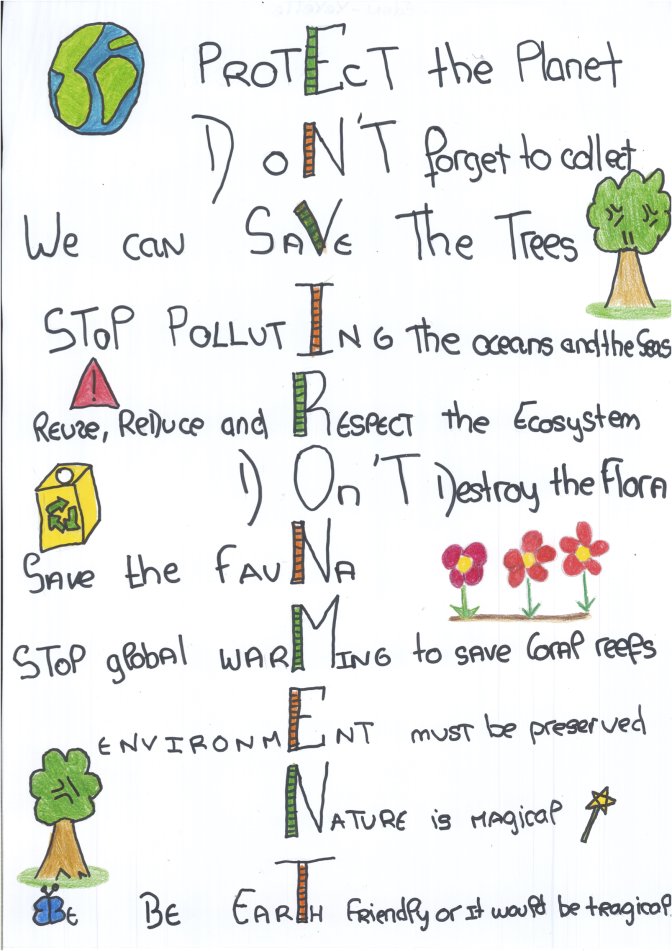 PROTECT the Planet
DON'T forget to collect
We can SAVE The Trees
STOP POLLUTING the oceans and the Seas
!
REUZE, REDUCE and RESPECT the Ecosystem
DOn'T Destroy the flora
SAVE the FAUNA
STOP global WARMING to SAVE coral reefs
ENVIRONMENT must be preserved
NATURE is MAgical
BE BE EARTH friendly or it would be tragical